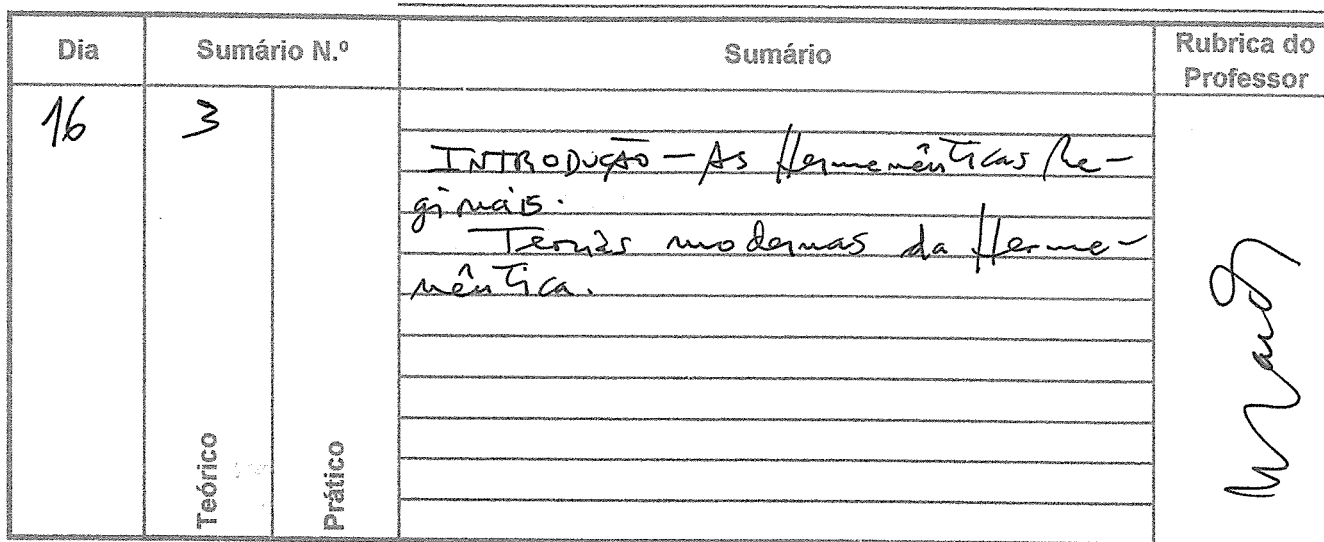 Dia
Sumário N.º
Sumário
Rubrica do
Professor
16
3
INTRODUÇÃO — As Hermenêuticas Re-
gionais.
Teorias modernas da Herme-
nêutica.
Teórico
Prático